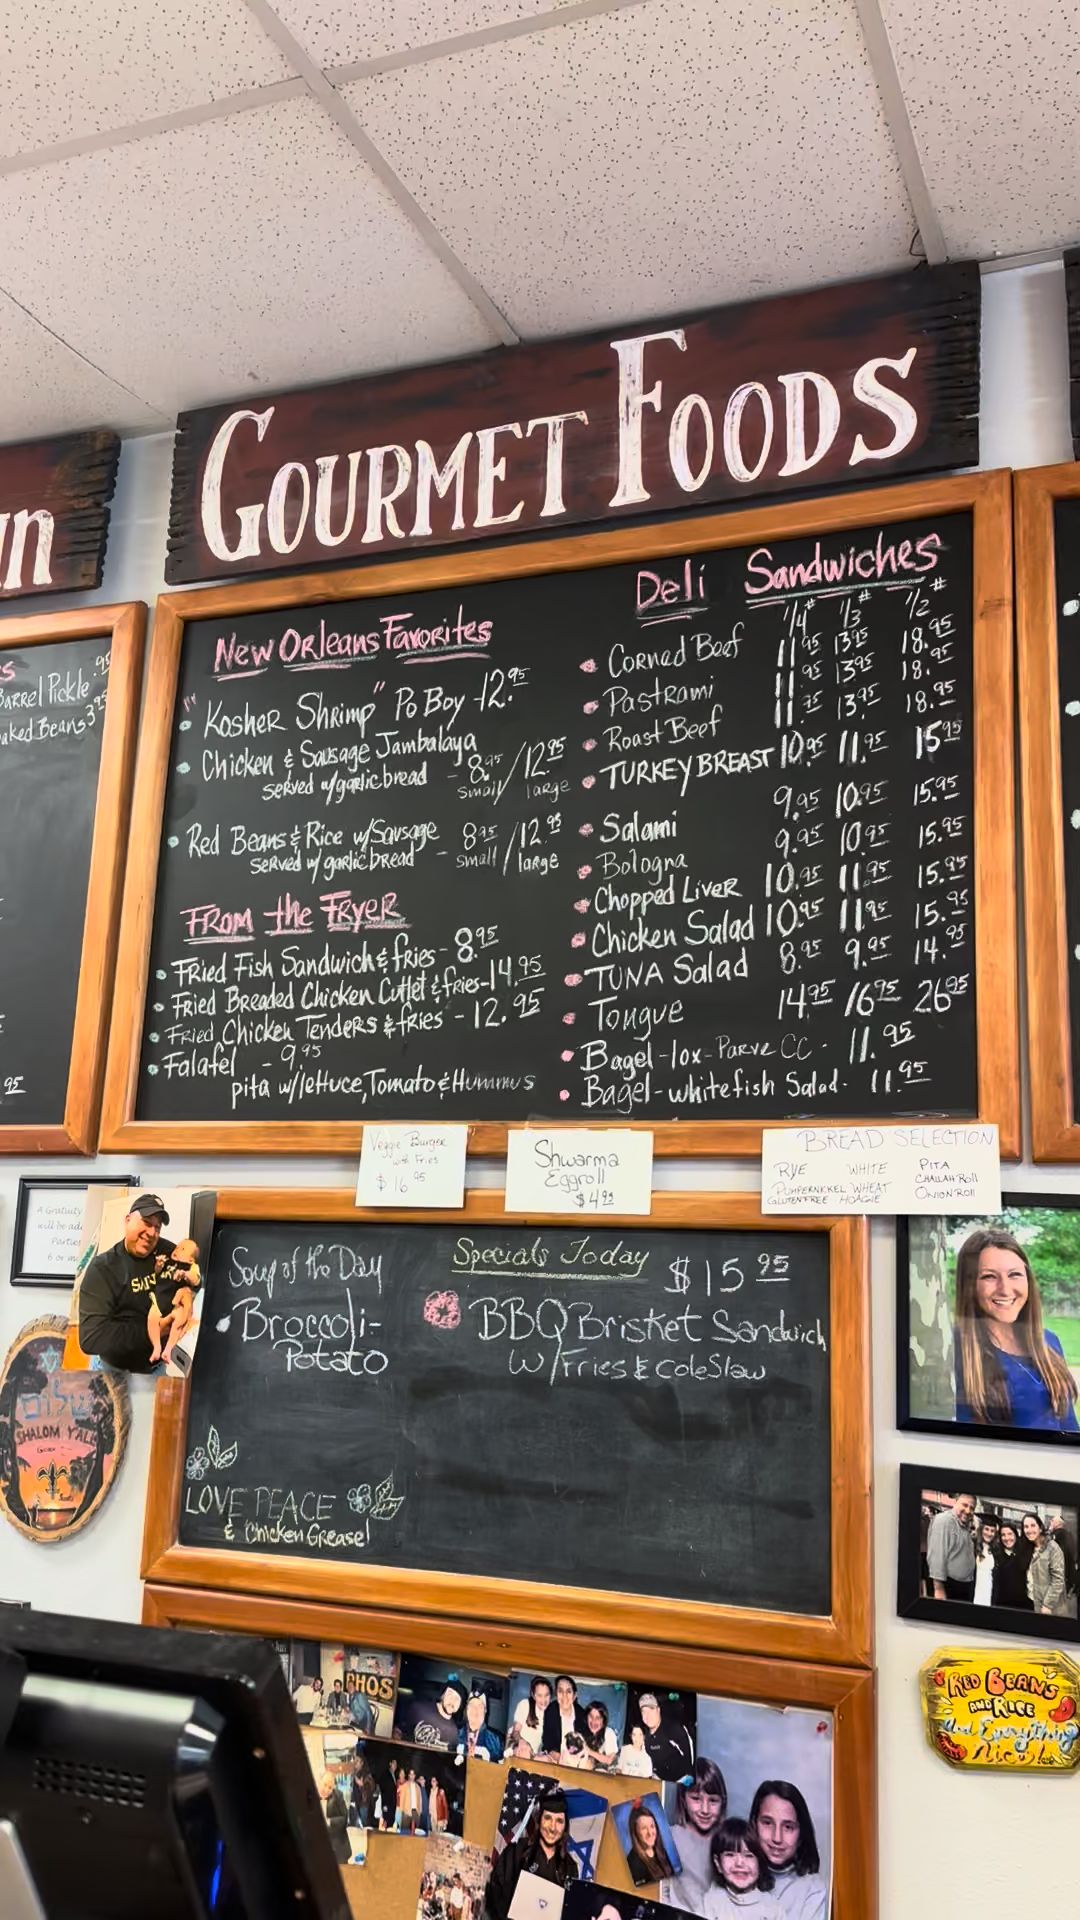 un
GOURMET FOODS
Barrel Pickle .95
Baked Beans 3.95
.95
New Orleans Favorites
"Kosher Shrimp" Po Boy - 12.95
Chicken & Sausage Jambalaya
served w/garlic bread - 8.95 / 12.95
small / large
Red Beans & Rice w/Sausage
served w/ garlic bread - 8.95 / 12.95
small / large
From the Fryer
Fried Fish Sandwich & fries - 8.95
Fried Breaded Chicken Cutlet & fries - 14.95
Fried Chicken Tenders & fries - 12.95
Falafel - 9.95
pita w/lettuce, Tomato & Hummus
Deli Sandwiches
1/4# 1/3# 1/2#
Corned Beef 11.95 13.95 18.95
Pastrami 11.95 13.95 18.95
Roast Beef 11.95 13.95 18.95
TURKEY BREAST 10.95 11.95 15.95
Salami 9.95 10.95 15.95
Bologna 9.95 10.95 15.95
Chopped Liver 10.95 11.95 15.95
Chicken Salad 10.95 11.95 15.95
TUNA Salad 8.95 9.95 14.95
Tongue 14.95 16.95 26.95
Bagel - lox - Parve CC - 11.95
Bagel - whitefish Salad - 11.95
Veggie Burger
with Fries
$16.95
Shwarma
Eggroll
$4.95
BREAD SELECTION
RYE WHITE PITA
PUMPERNICKEL WHEAT CHALLAH Roll
GLUTEN FREE HOAGIE ONION Roll
A Gratuity
will be
6 or
Soup of the Day
Broccoli-
Potato
Specials Today $15.95
BBQ Brisket Sandwich
w/Fries & coleSlaw
LOVE PEACE
& Chicken Grease!
שלום
SHALOM Y'ALL
RED BEANS
AND RICE
And Everything
Nice!